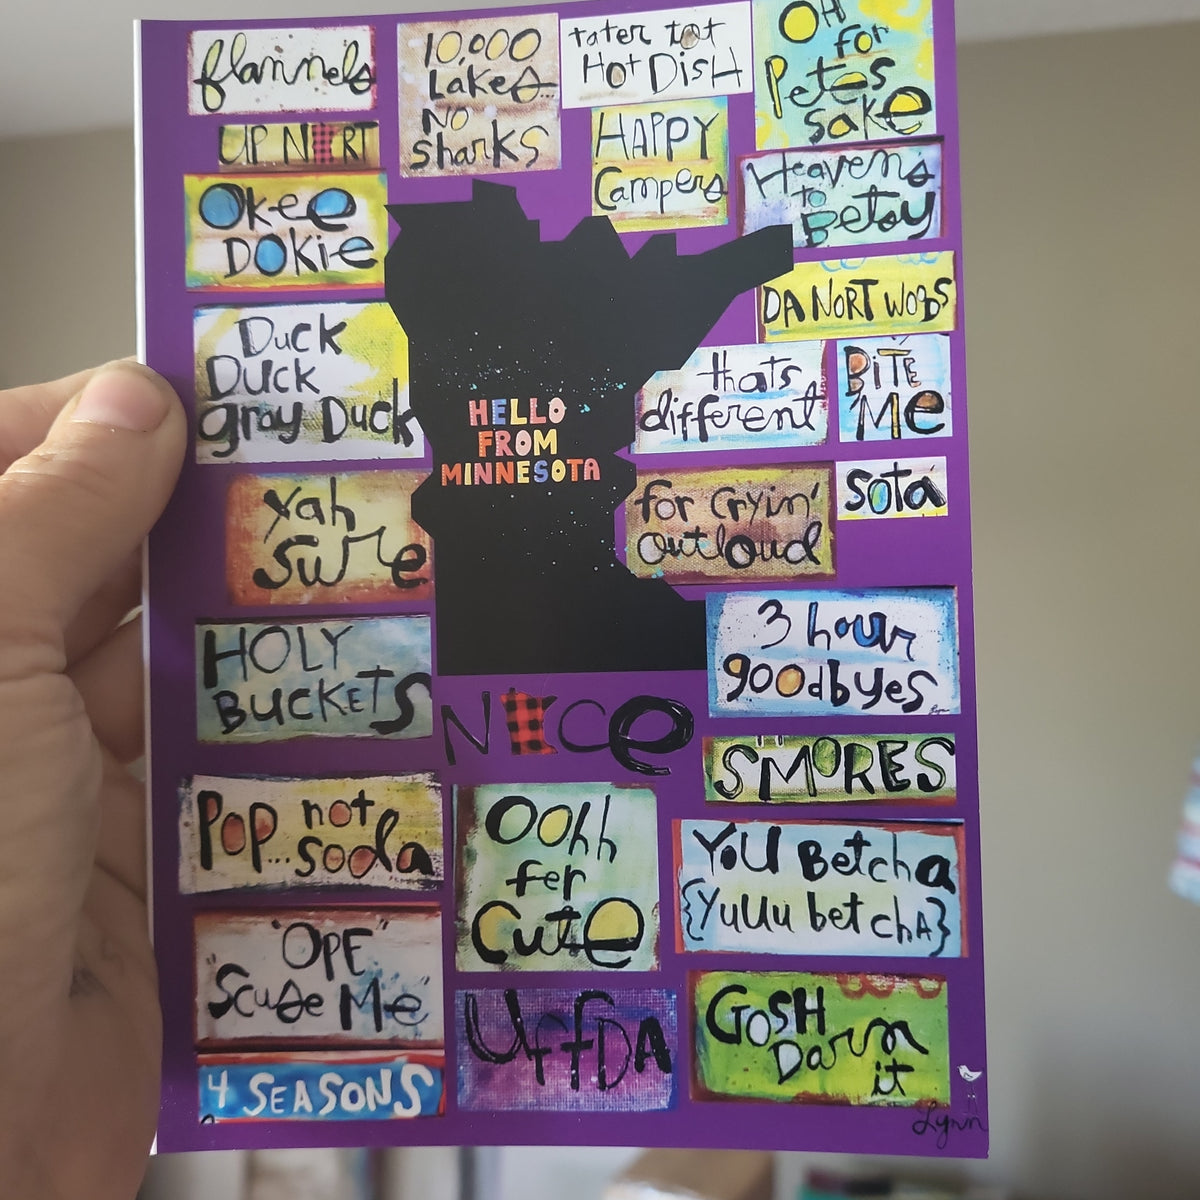 flannels
UP NORT
Okee
DOKiE
Duck
Duck
gray Duck
Yah
sure
HOLY
BUCKETS
Pop... not
soda
"OPE"
"Scuse Me"
4 SEASONS
10,000
Lakes...
NO
sharks
tater tot
HOt DisH
HAPPY
Campers
OH
for
Petes
sake
Heavens
to
Betsy
DA NORT WOODS
thats
different
BiTE
Me
sota
for cryin'
outloud
HELLO
FROM
MINNESOTA
3 hour
goodbyes
NICe
S'MORES
Oohh
fer
Cute
YOU Betcha
{YuUu betchA}
UffDA
GOSH
Darn
it
Lynn